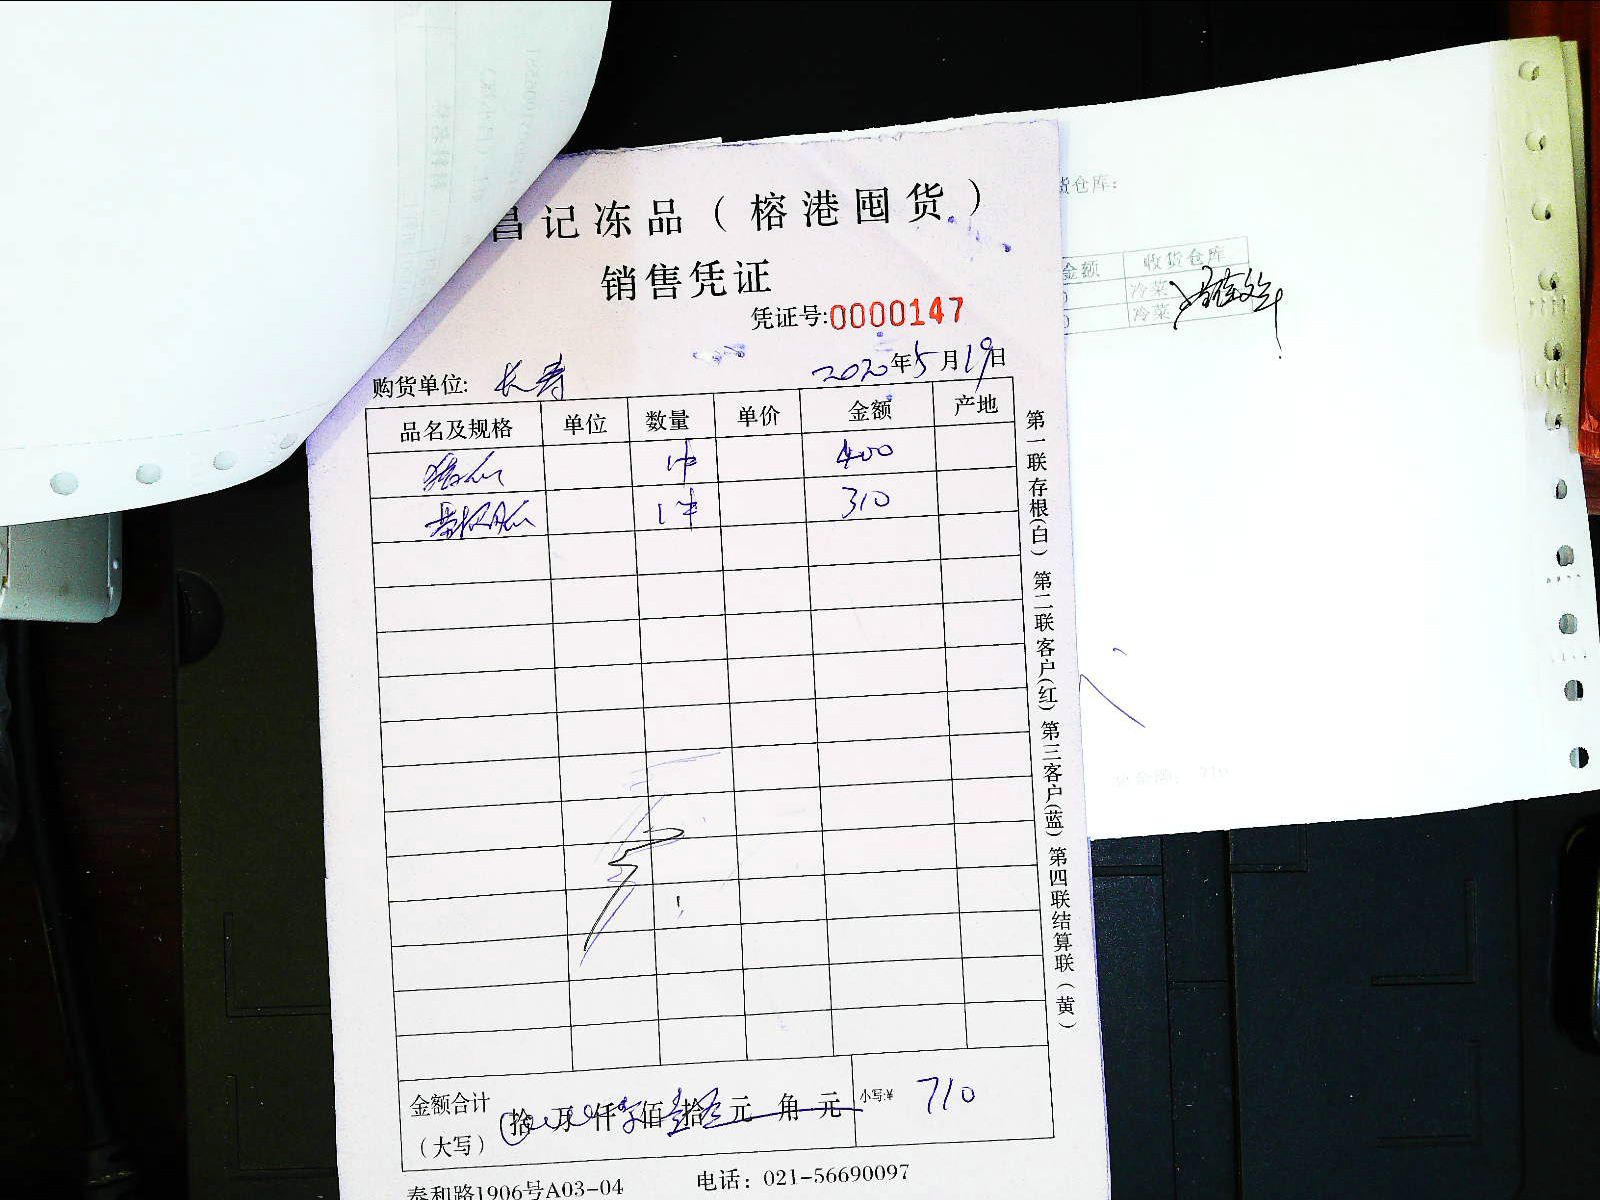 昌记冻品（榕港囤货）
销售凭证
凭证号:0000147
购货单位: 长寿 2020年5月19日
品名及规格 单位 数量 单价 金额 产地
1件 400
1件 310
金额合计 拾 万 仟 佰 壹拾 元 角 元 小写:¥ 710
（大写）
泰和路1906号A03-04 电话：021-56690097
第一联存根(白) 第二联客户(红) 第三客户(蓝) 第四联结算联(黄)
货仓库:
金额 收货仓库
0 冷菜
0 冷菜
总金额: 710